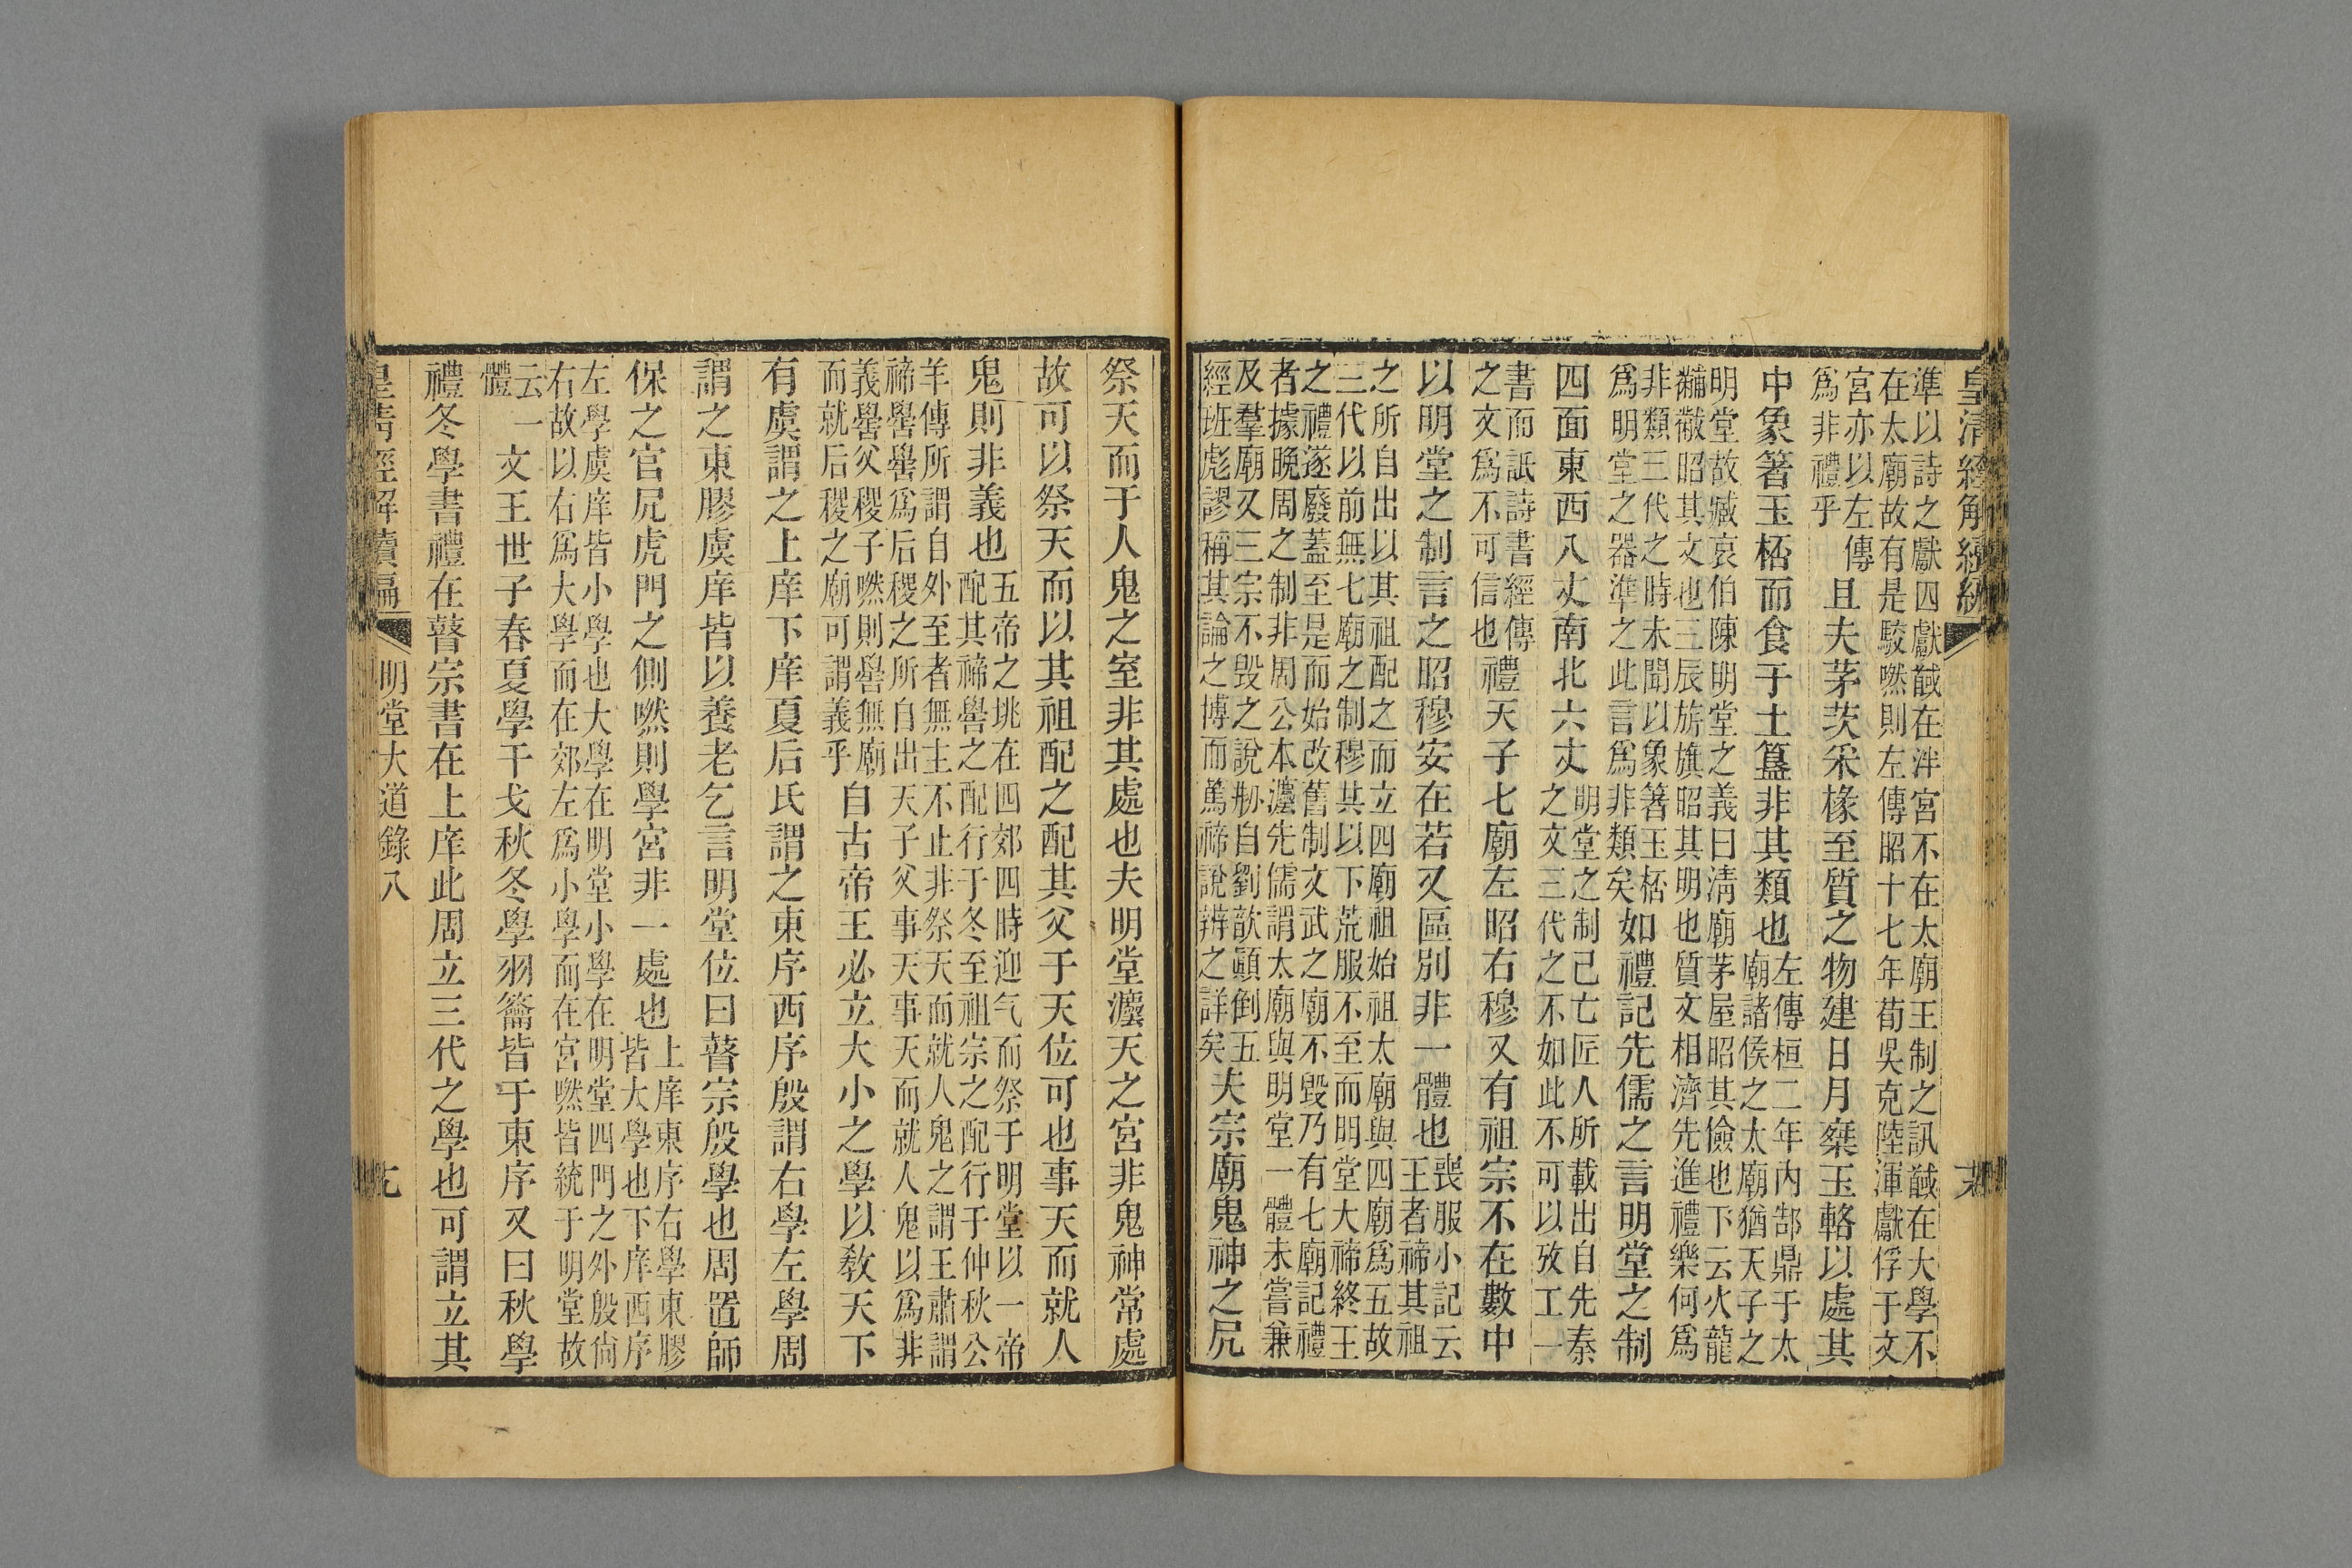 皇清經解續編
準以詩之獻囚獻馘在泮宮不在太廟王制之訊馘在大學不
在太廟故有是駮㬗則左傳昭十七年荀吳克陸渾獻俘于文
宮亦以左傳
爲非禮乎
且夫茅茨采椽至質之物建日月椉玉輅以處其
中象箸玉桮而食于土簋非其類也
左傳桓二年內郜鼎于太
廟諸侯之太廟猶天子之
明堂故臧哀伯陳明堂之義曰淸廟茅屋昭其儉也下云火龍
黼黻昭其文也三辰旂旗昭其明也質文相濟先進禮樂何爲
非類三代之時未聞以象箸玉桮
爲明堂之器準之此言爲非類矣
如禮記先儒之言明堂之制
四面東西八丈南北六丈
明堂之制已亡匠人所載出自先秦
之文三代之不如此不可以攷工一
書而詆詩書經傳
之文爲不可信也
禮天子七廟左昭右穆又有祖宗不在數中
以明堂之制言之昭穆安在若又區別非一體也
喪服小記云
王者禘其祖
之所自出以其祖配之而立四廟祖始祖太廟與四廟爲五故
三代以前無七廟之制穆共以下荒服不至而明堂大禘終王
之禮遂廢蓋至是而始改舊制文武之廟不毀乃有七廟記禮
者據晚周之制非周公本灋先儒謂太廟與明堂一體未嘗兼
及羣廟又三宗不毀之說刱自劉歆顚倒五
經班彪謬稱其論之博而篤禘說辨之詳矣
夫宗廟鬼神之凥
祭天而于人鬼之室非其處也夫明堂灋天之宮非鬼神常處
故可以祭天而以其祖配之配其父于天位可也事天而就人
鬼則非義也
五帝之垗在四郊四時迎气而祭于明堂以一帝
配其禘嚳之配行于冬至祖宗之配行于仲秋公
羊傳所謂自外至者無主不止非祭天而就人鬼之謂王肅謂
禘嚳嚳爲后稷之所自出天子父事天事天而就人鬼以爲非
義嚳父稷子㬗則嚳無廟
而就后稷之廟可謂義乎
自古帝王必立大小之學以敎天下
有虞謂之上庠下庠夏后氏謂之東序西序殷謂右學左學周
謂之東膠虞庠皆以養老乞言明堂位曰瞽宗殷學也周置師
保之官凥虎門之側㬗則學宮非一處也
上庠東序右學東膠
皆大學也下庠西序
左學虞庠皆小學也大學在明堂小學在明堂四門之外殷尙
右故以右爲大學而在郊左爲小學而在宮㬗皆統于明堂故
云一
體
文王世子春夏學干戈秋冬學羽籥皆于東序又曰秋學
禮冬學書禮在瞽宗書在上庠此周立三代之學也可謂立其
皇清經解續編
明堂大道錄八